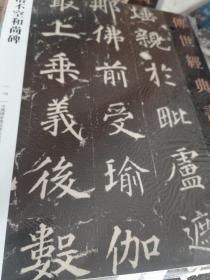 傳世經典書
迹親於毗盧遮
那佛前受瑜伽
最上乘義後數
不空和尚碑